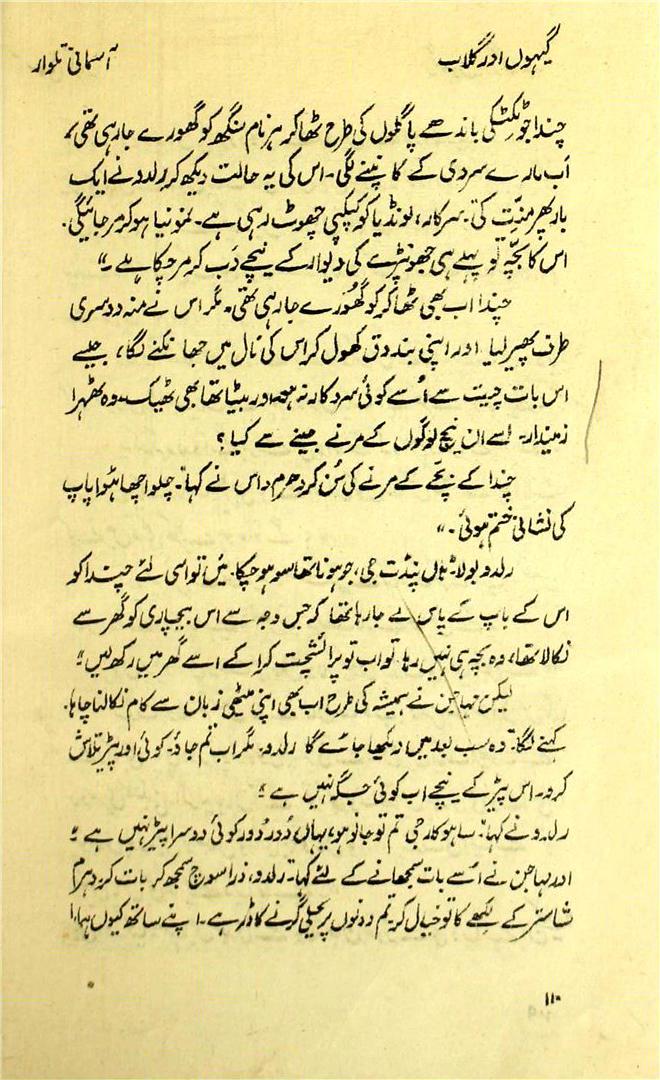 گیہوں اور گلاب
آسمانی تلوار
چندا جو ٹکٹکی باندھے پاگلوں کی طرح ٹھاکر ہرنام سنگھ کو گھورے جا رہی تھی،
اَب مارے سردی کے کانپنے لگی۔ اس کی یہ حالت دیکھ کر رلدو نے ایک
بار پھر منّت کی۔ سرکار، لونڈیا کو کپکپی چھوٹ رہی ہے۔ نمونیا ہو کر مر جائیگی۔
اس کا بچّہ تو پہلے ہی جھونپڑے کی دیوار کے نیچے دَب کر مر چکا ہے۔"
چندا اب بھی ٹھاکر کو گھُورے جا رہی تھی۔ مگر اس نے منہ دوسری
طرف پھیر لیا اور اپنی بندوق کھول کر اس کی نال میں جھانکنے لگا، جیسے
اس بات چیت سے اُسے کوئی سروکار نہ ہو۔ اور بیٹھا تھا بھی ٹھیک۔ وہ ٹھہرا
زمیندار۔ اسے ان نیچ لوگوں کے مرنے جینے سے کیا؟
چندا کے بچّے کے مرنے کی سُن کر دھرم داس نے کہا۔ "چلو اچھا ہوا پاپ
کی نشانی ختم ہوئی۔"
رلدو بولا۔ "ہاں پنڈت جی، جو ہونا تھا سو ہو چکا۔ میں تو اسی لئے چندا کو
اس کے باپ کے پاس لے جا رہا تھا کہ جس وجہ سے اس بیچاری کو گھر سے
نکالا تھا، وہ بچہ ہی نہیں رہا، تو اب تو پرائشچت کرا کے اسے گھر میں رکھ لیں"
لیکن مہاجن نے ہمیشہ کی طرح اب بھی اپنی میٹھی زبان سے کام نکالنا چاہا۔
کہنے لگا۔ "وہ سب بعد میں دیکھا جائے گا رلدو۔ مگر اب تم جاؤ۔ کوئی اور پیڑ تلاش
کرو۔ اس پیڑ کے نیچے اب کوئی جگہ نہیں ہے"
رلدو نے کہا: "ساہوکار جی تم تو جانو ہو، یہاں دُور دُور کوئی دوسرا پیڑ نہیں ہے"
اور مہاجن نے اُسے بات سمجھانے کے لئے کہا۔ "رلدو، ذرا سوچ سمجھ کر بات کر۔ دھرم
شاستر کے لکھے کا تو خیال کر۔ تم دونوں پر بجلی گرنے کا ڈر ہے۔ اپنے ساتھ کیوں ہمارا
۱۱۰